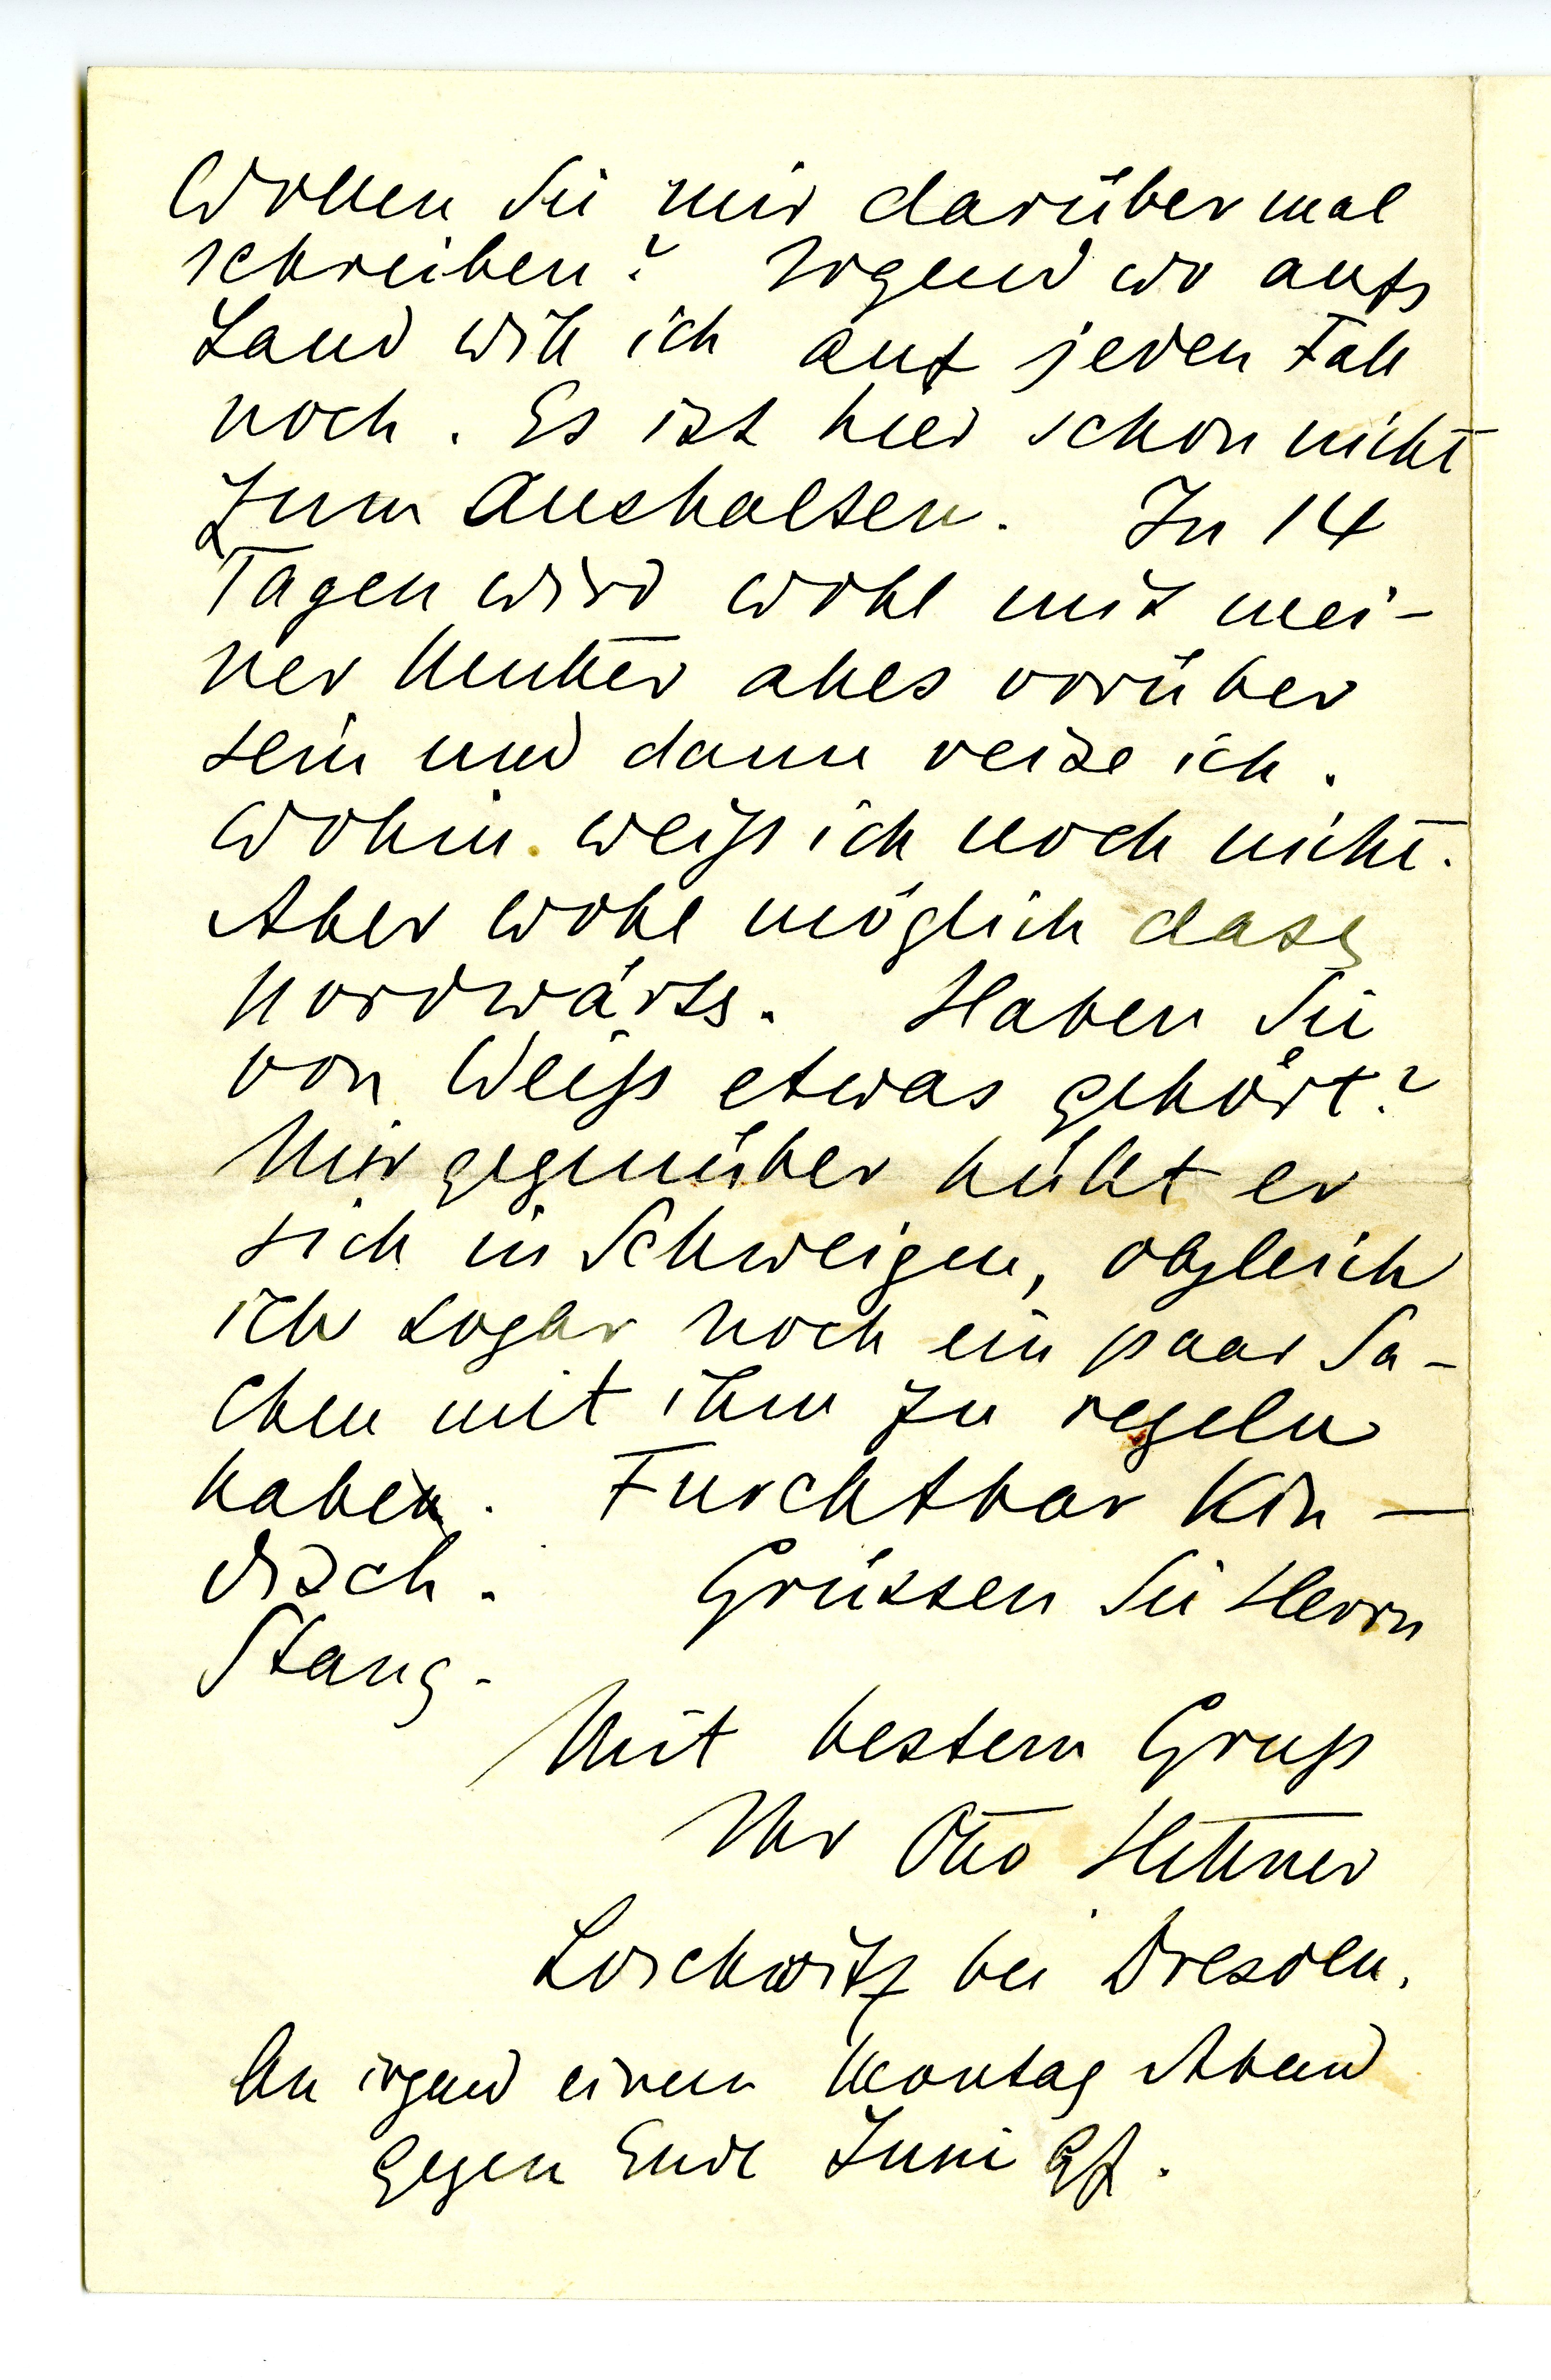 Wollen Sie mir darüber mal
schreiben? Irgend wo aufs
Land will ich auf jeden Fall
noch. Es ist hier schon nicht
zum Aushalten. In 14
Tagen wird wohl mit mei-
ner Mutter alles vorüber
sein und dann reise ich.
Wohin weiss ich noch nicht.
Aber wohl möglich dass
nordwärts. Haben Sie
von Weiss etwas gehört?
Mir gegenüber hüllt er
sich in Schweigen, obgleich
ich sogar noch ein paar Sa-
chen mit ihm zu regeln
habe. Furchtbar kin-
disch. Grüssen Sie Herrn
Stang.
Mit bestem Gruss
Ihr Otto Hettner
Loschwitz bei Dresden.
An irgend einem Montag Abend
gegen Ende Juni